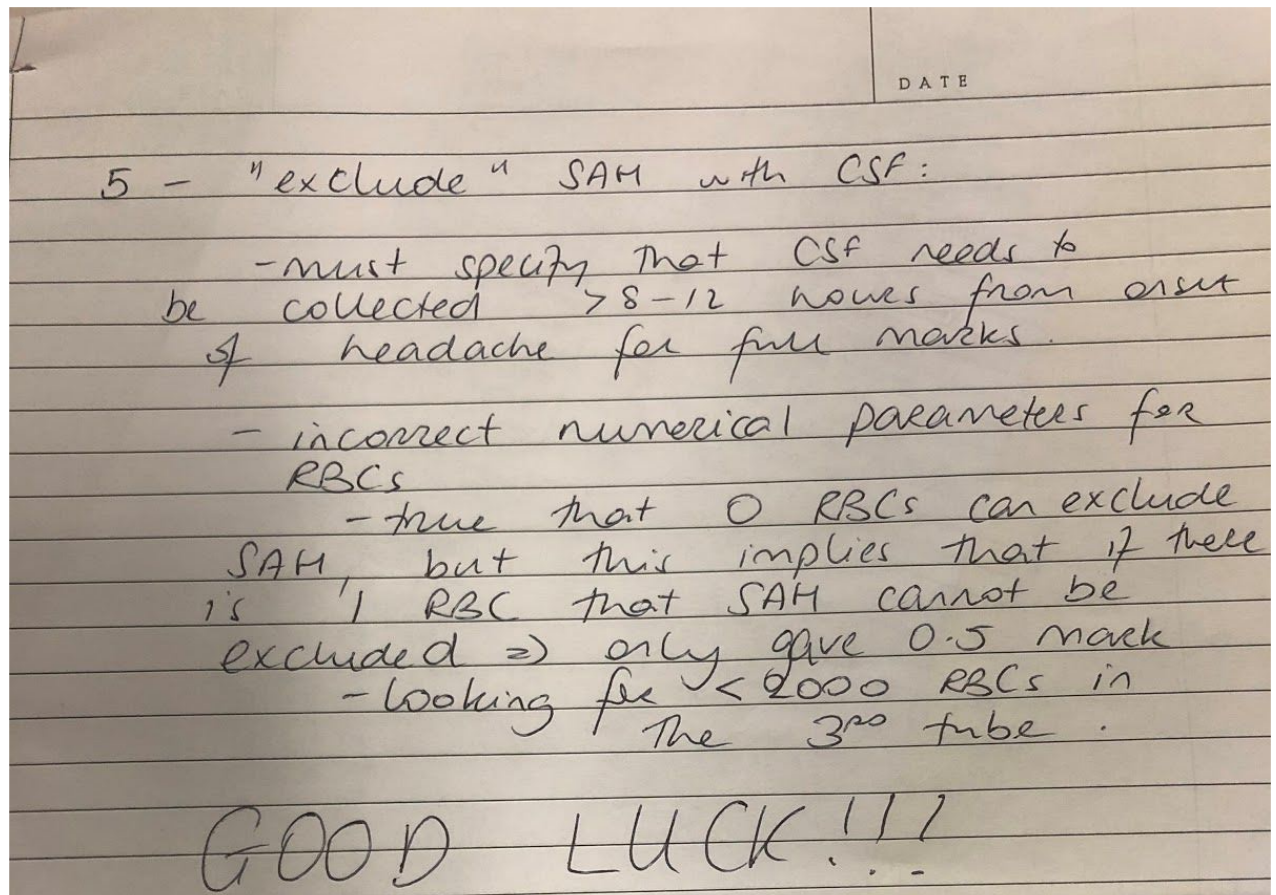 DATE
5 - "exclude" SAH with CSF:
- must specify that CSF needs to
be collected >8-12 hours from onset
of headache for full marks.
- incorrect numerical parameters for
RBCs
- true that 0 RBCs can exclude
SAH, but this implies that if there
is 1 RBC that SAH cannot be
excluded => only gave 0.5 mark
- looking for <2000 RBCs in
the 3RD tube.
GOOD LUCK!!!